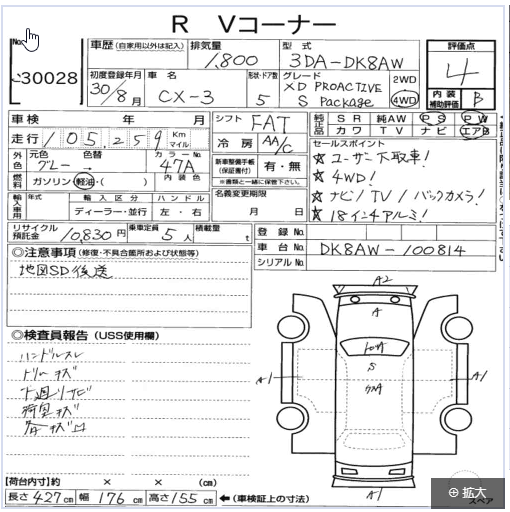 R Vコーナー
No.
30028
車歴 (自家用以外は記入) 排気量 1,800 型式 3DA-DK8AW
初度登録年月 30/8月 車名 CX-3 形状・ドア数 5 グレード XD PROACTIVE S Package 2WD 4WD
評価点 4
内装補助評価 B
車検 年 月 シフト FAT
純正品 SR 純AW PS PW
カワ TV ナビ エアB
走行 105,259 Km マイル
冷房 AA/C
セールスポイント
外色 元色 グレー → 色替 カラーNo. 47A
新車整備手帳(保証書付) 有・無
※書類と一緒に保管下さい。
☆ ユーザー下取車!
☆ 4WD!
☆ ナビ/TV/バックカメラ!
☆ 18インチアルミ!
燃料 ガソリン・軽油・( ) 内装色
名義変更期限 月 日
輸入車用 年式 輸入区分 ハンドル
ディーラー・並行 左・右
リサイクル預託金 10,830円 乗車定員 5人 積載量 t
登録No.
車台No. DK8AW-100814
シリアルNo.
◎注意事項 (修復・不具合箇所および状態等)
地図SD後送
◎検査員報告 (USS使用欄)
ハンドルスレ
下廻りサビ
A2
A
A1
A1
S
A1
【荷台内寸】約 × × (cm)
長さ 427cm 幅 176cm 高さ 155cm ←(車検証上の寸法)
スペア
拡大